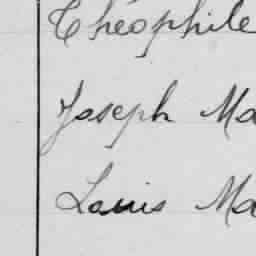 Théophile
Joseph Ma
Louis Ma